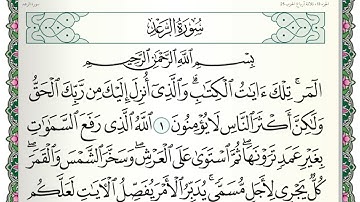 سُورَةُ الرَّعْدِ
بِسْمِ ٱللَّهِ ٱلرَّحْمَٰنِ ٱلرَّحِيمِ
الٓمٓر ۚ تِلْكَ ءَايَٰتُ ٱلْكِتَٰبِ ۗ وَٱلَّذِىٓ أُنزِلَ إِلَيْكَ مِن رَّبِّكَ ٱلْحَقُّ
وَلَٰكِنَّ أَكْثَرَ ٱلنَّاسِ لَا يُؤْمِنُونَ ١ ٱللَّهُ ٱلَّذِى رَفَعَ ٱلسَّمَٰوَٰتِ
بِغَيْرِ عَمَدٍ تَرَوْنَهَا ۖ ثُمَّ ٱسْتَوَىٰ عَلَى ٱلْعَرْشِ ۖ وَسَخَّرَ ٱلشَّمْسَ وَٱلْقَمَرَ ۖ
كُلٌّ يَجْرِى لِأَجَلٍ مُّسَمًّى ۚ يُدَبِّرُ ٱلْأَمْرَ يُفَصِّلُ ٱلْءَايَٰتِ لَعَلَّكُم